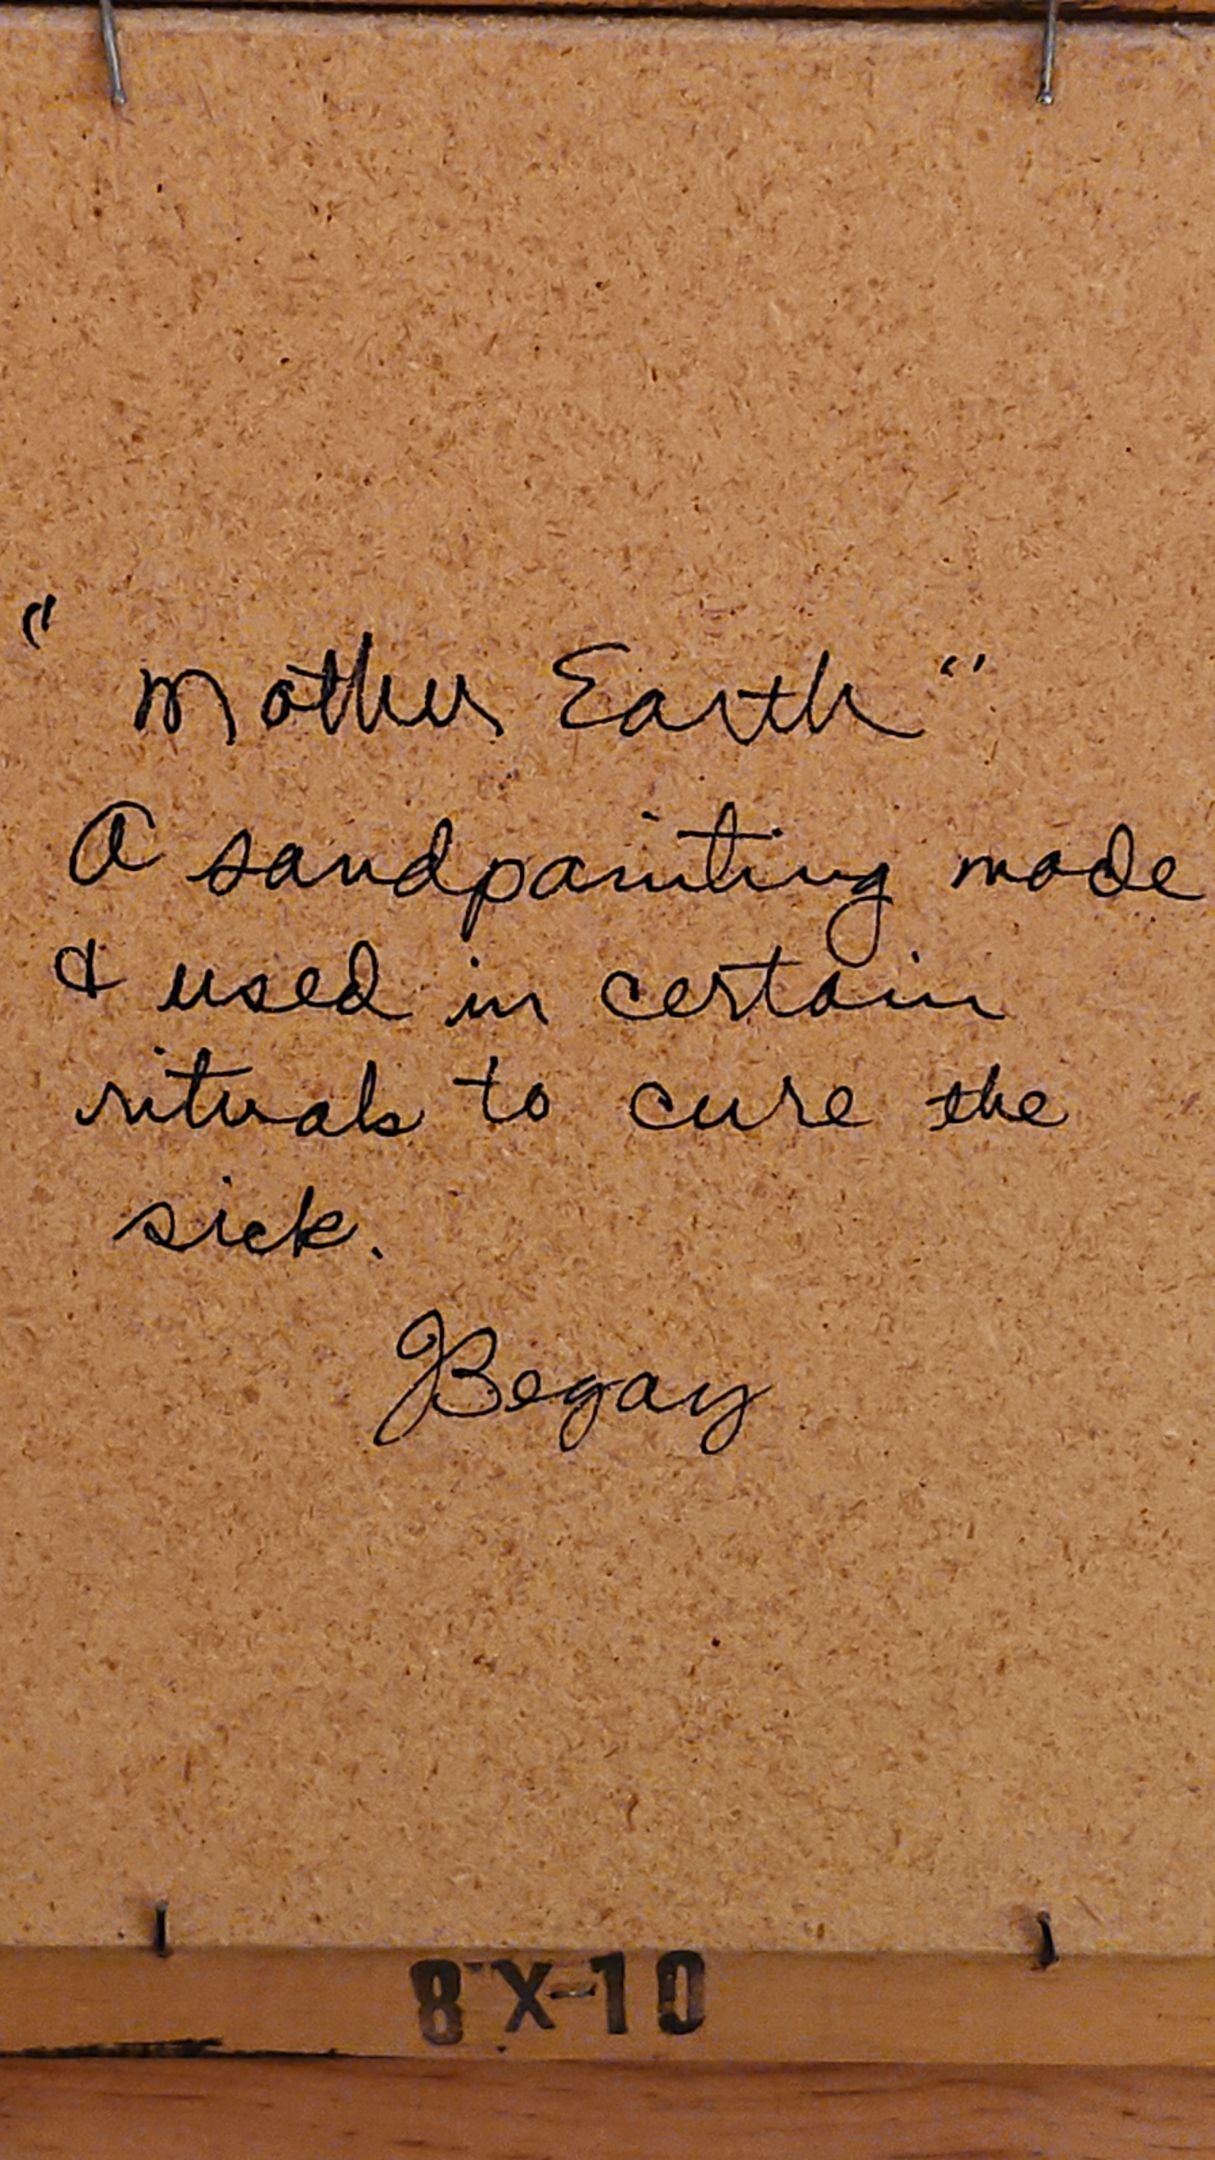 "Mother Earth"
A sandpainting made
& used in certain
rituals to cure the
sick.
JBegay
8 X-10